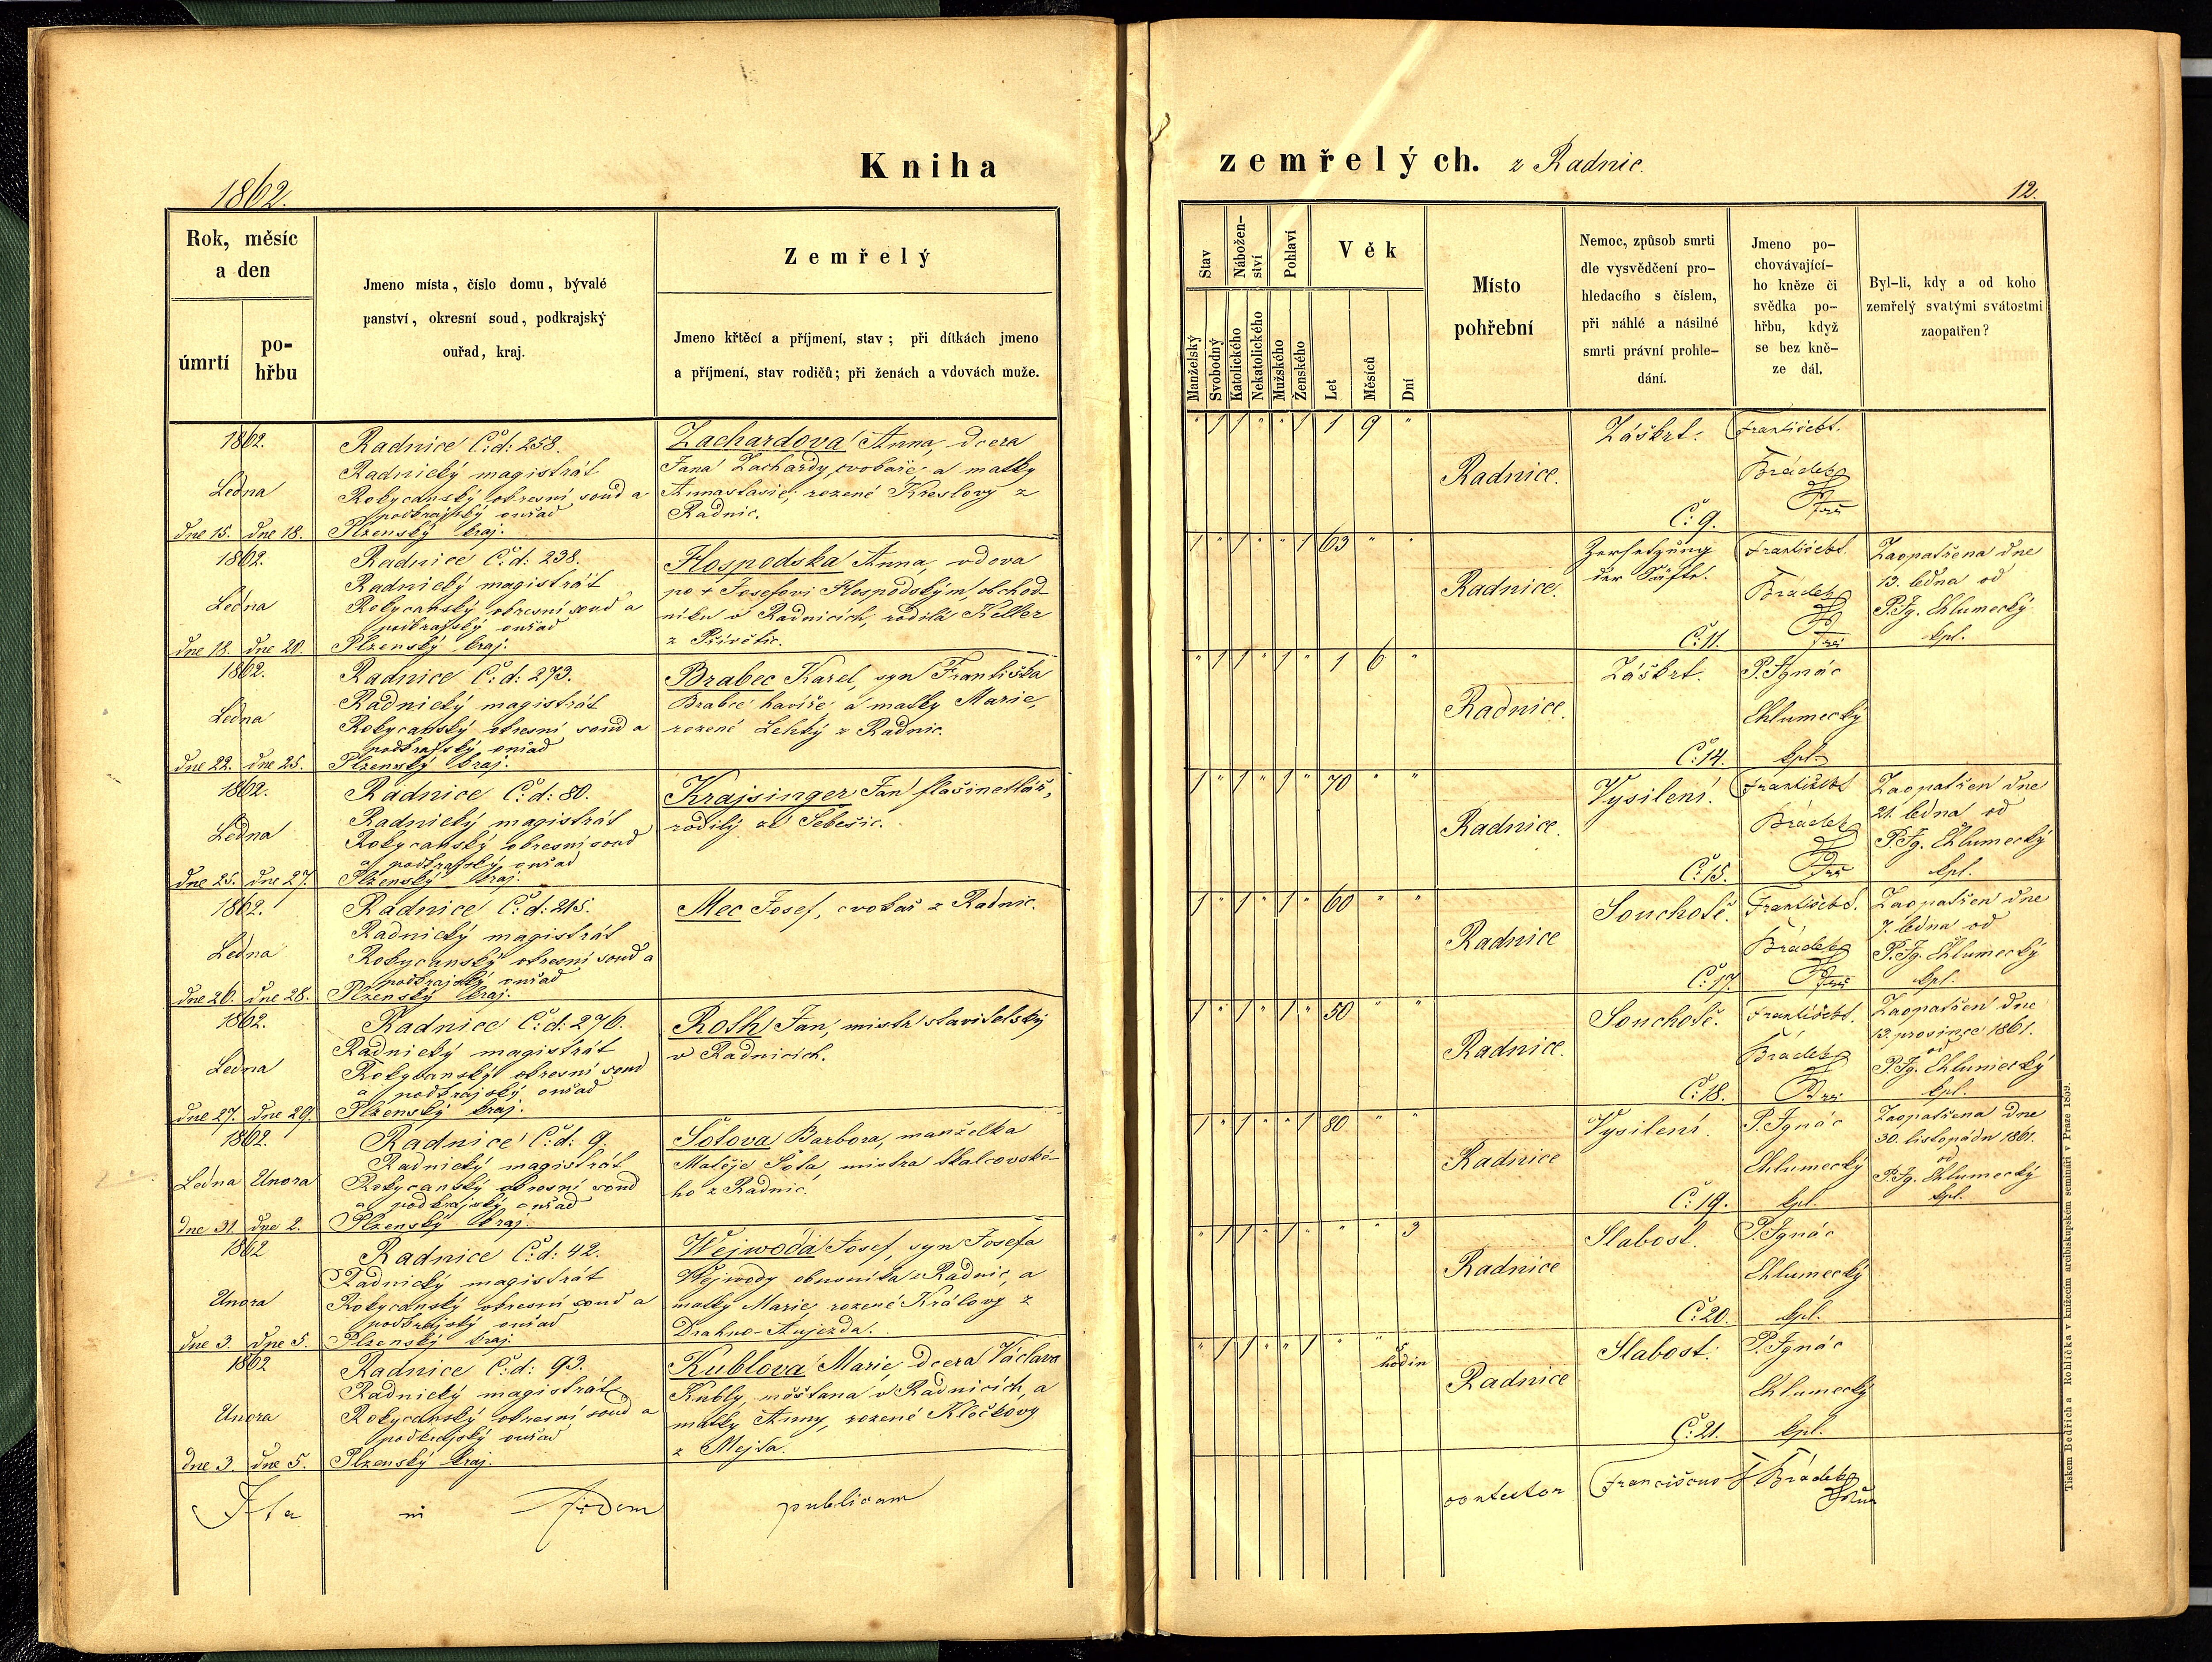 Kniha
zemřelých. z Radnic.
1862.
12.
Rok, měsíc
a den
úmrtí
po-
hřbu
Jmeno místa, číslo domu, bývalé
panství, okresní soud, podkrajský
ouřad, kraj.
Zemřelý
Jmeno křtěcí a příjmení, stav; při dítkách jmeno
a příjmení, stav rodičů; při ženách a vdovách muže.
Stav
Nábožen-
ství
Pohlaví
Věk
Manželský
Svobodný
Katolického
Nekatolického
Mužského
Ženského
Let
Měsíců
Dní
Místo
pohřební
Nemoc, způsob smrti
dle vysvědčení pro-
hledacího s číslem,
při náhlé a násilné
smrti právní prohle-
dání.
Jmeno po-
chovávající-
ho kněze či
svědka po-
hřbu, když
se bez kně-
ze dál.
Byl-li, kdy a od koho
zemřelý svatými svátostmi
zaopatřen?
1862.
Ledna
dne 15. dne 18.
Radnice Č. d: 258.
Radnický magistrát
Rokycanský okresní soud a
podkrajský ouřad
Plzenský kraj.
Zachardova Anna, dcera
Jana Zachardy, cvokaře, a matky
Annastasie, rozené Kreslovy z
Radnic.
" 1 1 " " 1 1 9 "
Radnice.
Záškrt.
Č: 9.
František
Brádek
1862.
Ledna
dne 18. dne 20.
Radnice Č. d: 238.
Radnický magistrát
Rokycanský okresní soud a
podkrajský ouřad
Plzenský kraj.
Hospodska Anna, vdova
po + Josefovi Hospodským obchod-
níku v Radnicích, rodilá Keller
z Přívětic.
1 " 1 " " 1 63 " "
Radnice.
Zersetzung
der Säfte.
Č: 11.
František
Brádek
Zaopatřena dne
13. ledna od
P. Ig. Chlumecký
kpl.
1862.
Ledna
dne 22. dne 25.
Radnice Č. d: 273.
Radnický magistrát
Rokycanský okresní soud a
podkrajský ouřad
Plzenský kraj.
Brabec Karel, syn Františka
Brabce havíře, a matky Marie,
rozené Lehký z Radnic.
" 1 1 " 1 " 1 6 "
Radnice.
Záškrt.
Č: 14.
P. Ignác
Chlumecký
kpl.
1862.
Ledna
dne 25. dne 27.
Radnice Č. d: 80.
Radnický magistrát
Rokycanský okresní soud
a podkrajský ouřad
Plzenský kraj.
Krajsinger Jan flašinetlář,
rodilý ze Sebešic.
1 " 1 " 1 " 70 " "
Radnice.
Vysilení.
Č: 15.
František
Brádek
Zaopatřen dne
21. ledna od
P. Ig. Chlumecký
kpl.
1862.
Ledna
dne 26. dne 28.
Radnice Č. d: 215.
Radnický magistrát
Rokycanský okresní soud a
podkrajský ouřad
Plzenský kraj.
Mec Josef, cvokař z Radnic.
1 " 1 " 1 " 60 " "
Radnice
Souchotě.
Č: 17.
František
Brádek
Zaopatřen dne
7. ledna od
P. Ig. Chlumecký
kpl.
1862.
Ledna
dne 27. dne 29.
Radnice Č. d: 276.
Radnický magistrát
Rokycanský okresní soud
a podkrajský ouřad
Plzenský kraj.
Roth Jan, mistr stavitelský
v Radnicích.
1 " 1 " 1 " 50 " "
Radnice.
Souchotě.
Č: 18.
František
Brádek
Zaopatřen dne
13. prosince 1861.
od
P. Ig. Chlumecký
kpl.
1862.
Ledna Unora
dne 31. dne 2.
Radnice Č. d: 9.
Radnický magistrát
Rokycanský okresní soud
a podkrajský ouřad
Plzenský kraj.
Šotova Barbora, manželka
Matěje Šota, mistra tkalcovské-
ho z Radnic.
1 " 1 " " 1 80 " "
Radnice
Vysilení.
Č: 19.
P. Ignác
Chlumecký
kpl.
Zaopatřena dne
30. listopádu 1861.
od
P. Ig. Chlumecký
kpl.
1862
Unora
dne 3. dne 5.
Radnice Č. d: 42.
Radnický magistrát
Rokycanský okresní soud a
podkrajský ouřad
Plzenský kraj.
Wejwoda Josef, syn Josefa
Wejwody obuvníka z Radnic, a
matky Marie, rozené Královy z
Drahno-Aujezda.
" 1 1 " 1 " " " 3
Radnice
Slabost.
Č: 20.
P. Ignác
Chlumecký
kpl.
1862
Unora
dne 3. dne 5.
Radnice Č. d: 93.
Radnický magistrát
Rokycanský okresní soud a
podkrajský ouřad
Plzenský kraj.
Kublova Marie, dcera Václava
Kubly, měšťana v Radnicích, a
matky Anny, rozené Klečkovy
z Mejta.
" 1 1 " " 1 " " 5
hodin
Radnice
Slabost.
Č: 21.
P. Ignác
Chlumecký
kpl.
Ita in fidem publicam contestor Franciscus Brádek
Tiskem Bedřicha Rohlíčka v knížecím arcibiskupském semináři v Praze 1859.